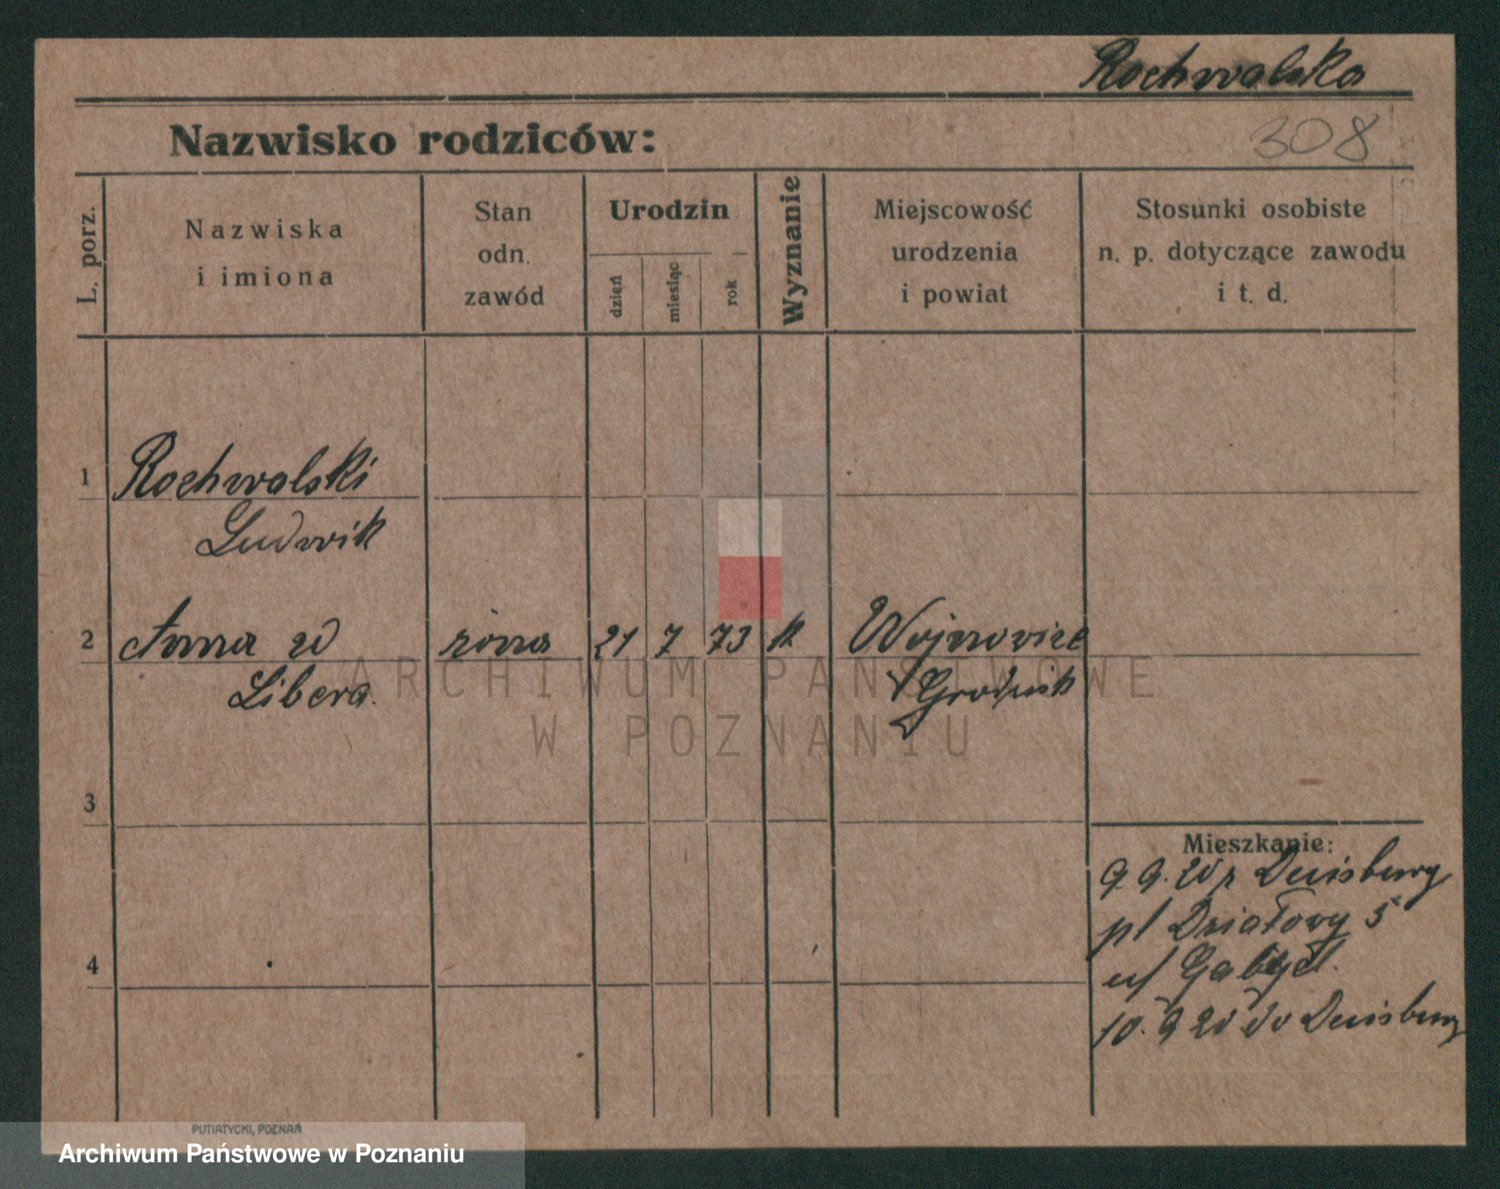 Rochwalska
Nazwisko rodziców:
308
L. porz.
Nazwiska
i imiona
Stan
odn.
zawód
Urodzin
dzień
miesiąc
rok
Wyznanie
Miejscowość
urodzenia
i powiat
Stosunki osobiste
n. p. dotyczące zawodu
i t. d.
1 Rochwalski
Ludwik
2 Anna żona 21 7 73 k Wojnowice
Libera. Grodzisk
3
4
Mieszkanie:
9 9. 20 z Duisburg
pl Działowy 5
u/
10. 9 20 do Duisburg
PUTIATYCKI, POZNAŃ
ARCHIWUM PAŃSTWOWE
W POZNANIU
Archiwum Państwowe w Poznaniu